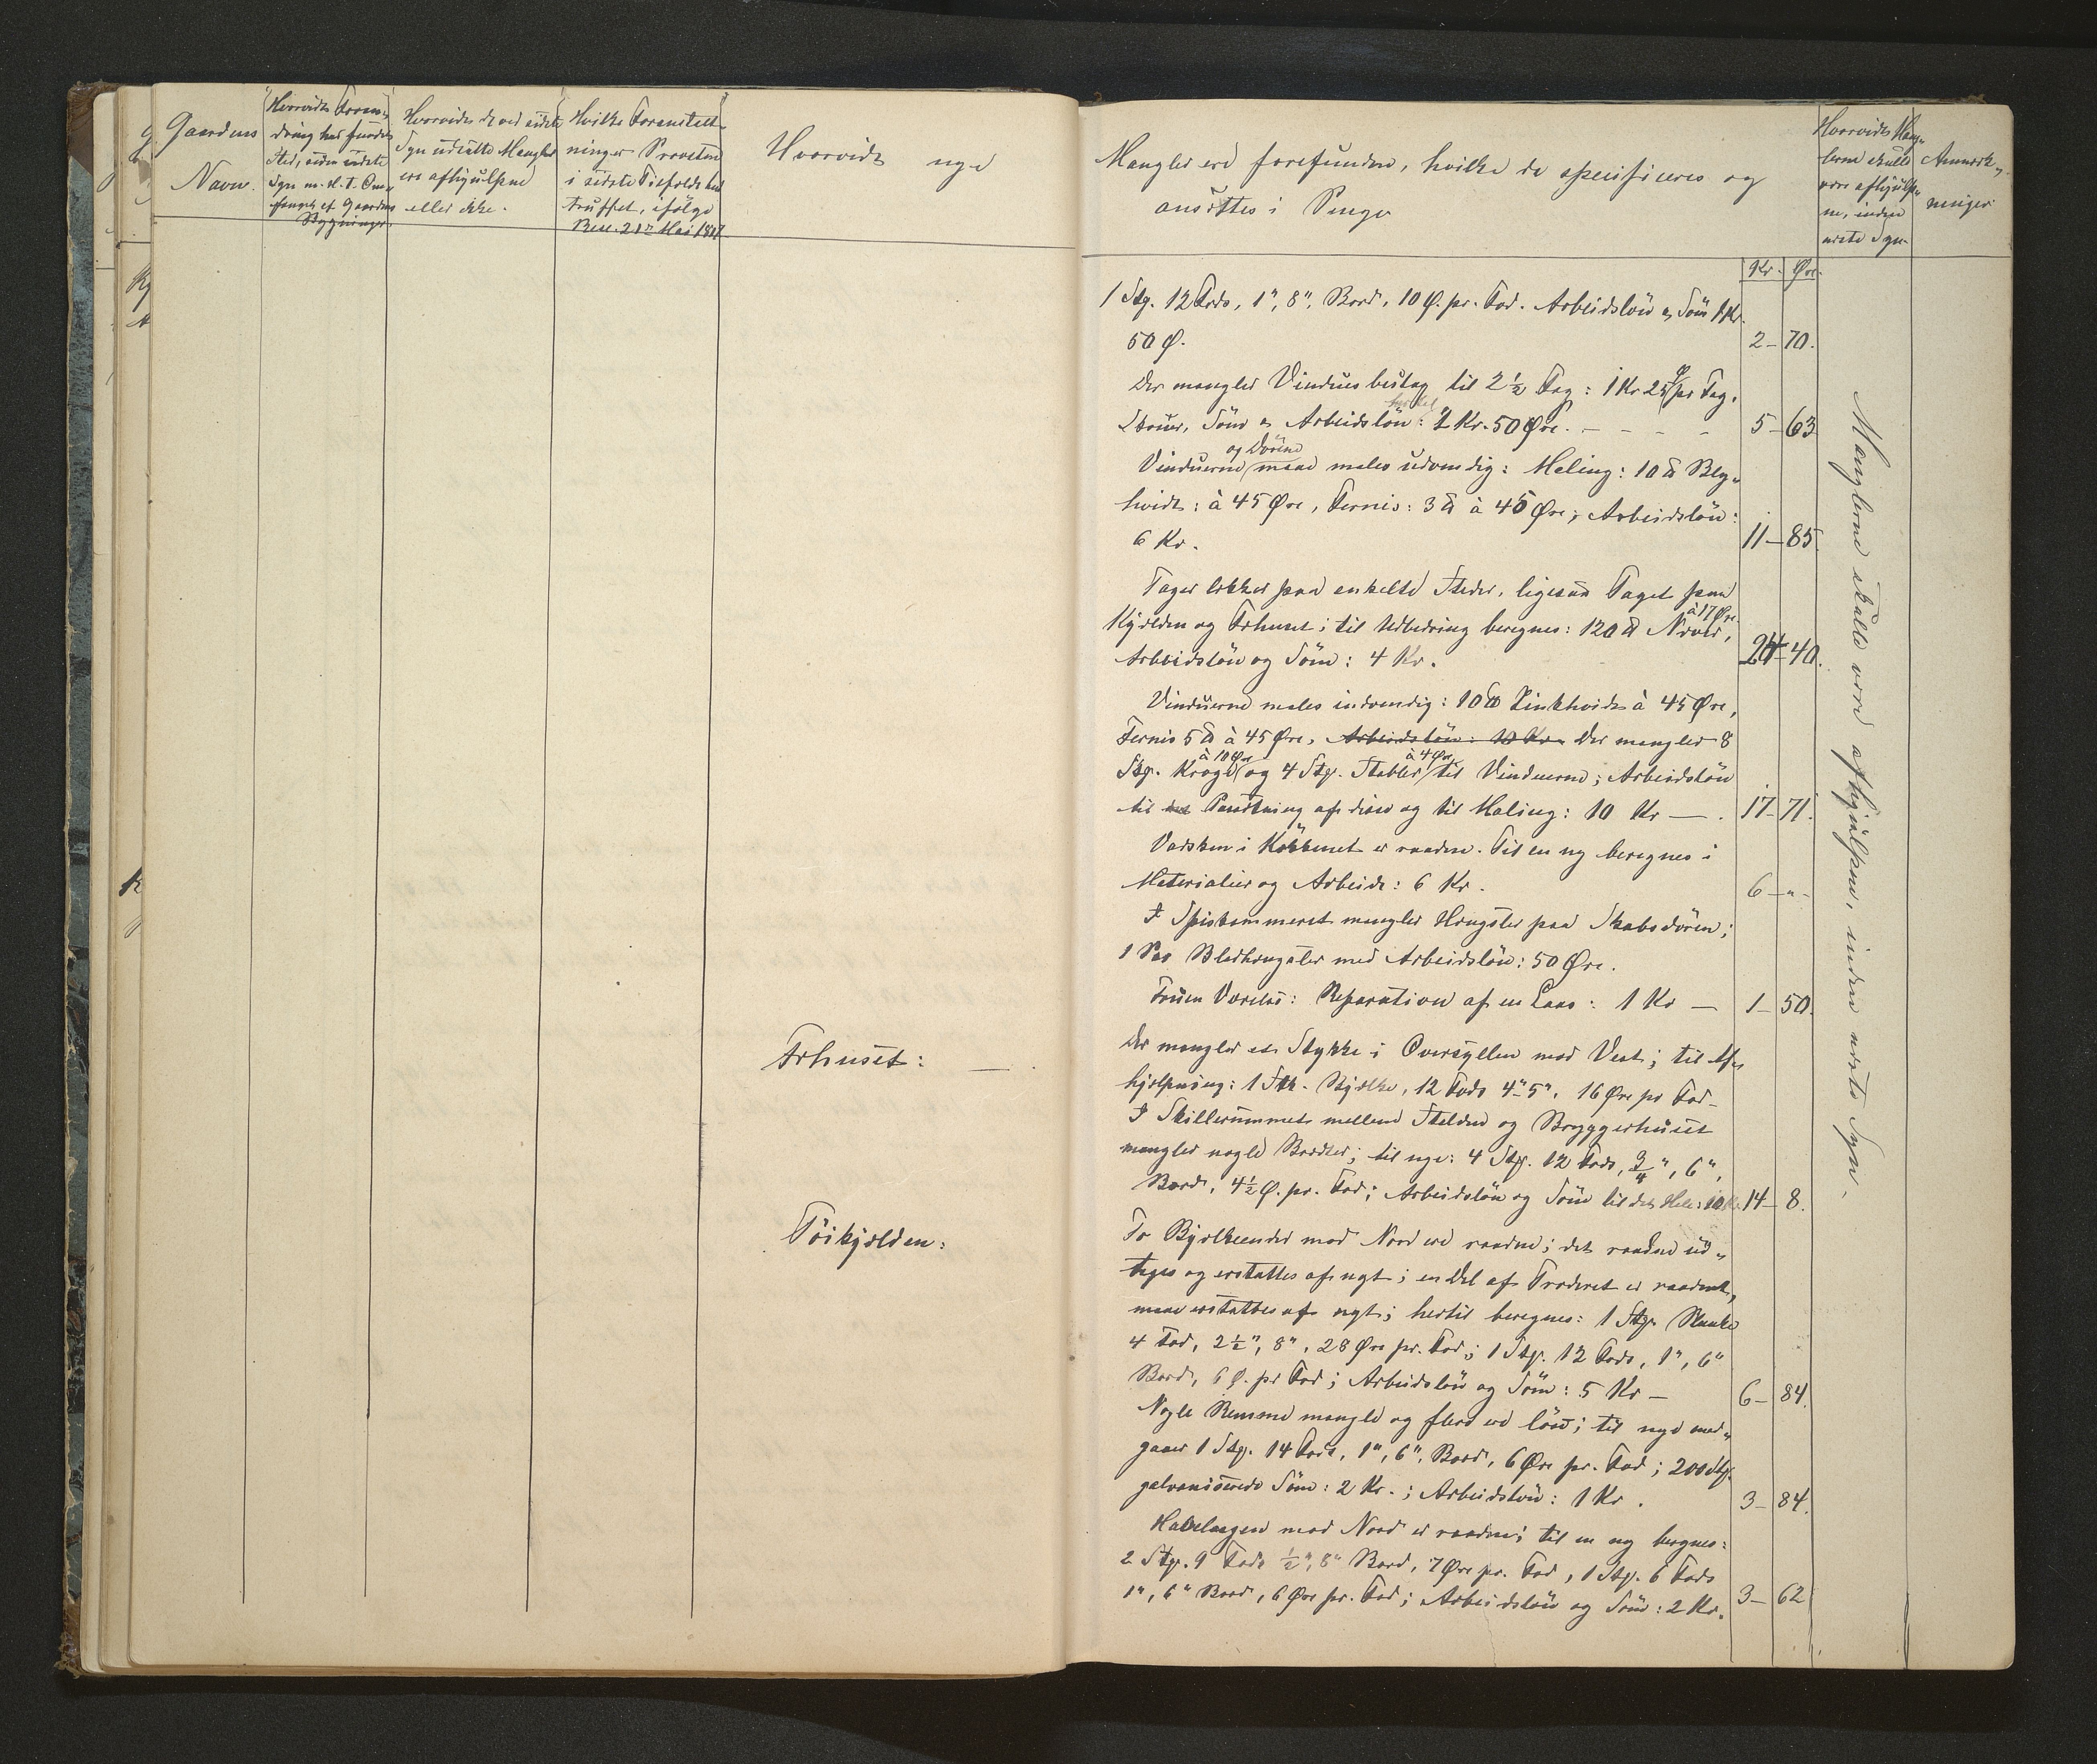 Gaardens
Navn.
Hvorvidt Foran-
dring har fundet
Sted, siden sidste
Syn m. H. t. Om-
fanget af Gaardens
Bygninger.
Hvorvidt de ved sidste
Syn udsatte Mangler
ere afhjulpne
eller ikke.
Hvilke Foranstalt-
ninger Provsten
i sidste Tilfælde har
truffet, ifølge
Resc. 21de Mai 18
Hvorvidt nye
Mangler ere forefundne, hvilke da specificeres og
ansættes i Penge
Hvorvidt Mang-
lerne skulle
være afhjulp-
ne, inden
næste Syn.
Anmærk-
ninger
Kr. Øre.
1 Stg. 12 Fods, 1", 8", Bord, 10 Ø. pr. Fod. Arbeidslön og Söm 1 Kr.
50 Ø. 2-70.
Der mangler Vinduesbeslag til 2½ Fag: 1 Kr 25 Ø pr Fag,
Skruer, Söm og Arbeidslön: 2 Kr. 50 Øre. - - - - 5-63
Vinduerne og Dörene maae males udvendig: Maling: 10 ℔ Bly-
hvidt: à 45 Øre, Fernis: 3 ℔ à 45 Øre; Arbeidslön:
6 Kr. 11-85
Taget lekker paa enkelte Steder, ligesaa Taget paa
Kjælden og Fehuset; til Udbedring beregnes: 120 ℔ Næver, à 17 Øre
Arbeidslön og Söm: 4 Kr. 24-40.
Vinduerne males indvendig: 10 ℔ Zinkhvidt à 45 Øre,
Fernis 5 ℔ à 45 Øre, Arbeidslön: 10 Kr. Der mangler 8
Stg. Kroge à 10 Øre og 4 Stg. Stabler à 4 Øre til Vinduerne; Arbeidslön
til Paasætning af disse og til Maling: 10 Kr —. 17-71.
Vasken i Kökkenet er raaden. Til en ny beregnes i
Materialier og Arbeide: 6 Kr. 6-"-
I Spiskammeret mangler Hængsler paa Skabsdören;
1 Par Bladhængsler med Arbeidslön: 50 Øre.
Fruens Værelse: Reparation af en Laas: 1 Kr — 1-50.
Fehuset: —
Der mangler et Stykke i Oversyllen mod Vest; til Af-
hjælpning: 1 Stk. Bjælke, 12 Fods 4"-5". 16 Øre pr Fod
I Skillerummet mellem Stalden og Bryggerhuset
mangler nogle Bordter; til nye: 4 Stg. 12 Fods, ¾", 6",
Bord, 4½ Ø. pr. Fod; Arbeidslön og Söm til det Hele: 10 Kr. 14-8.
Töikjælden:
To Bjælkeender mod Nord ere raadne; det raadne ud-
tages og erstattes af nyt; en Del af Træderet er raadent,
maae erstattes af nyt; hertil beregnes: 1 Stg. Planke
4 Fod, 2½", 8", 28 Øre pr. Fod; 1 Stg. 12 Fods, 1", 6"
Bord, 6 Ø. pr Fod; Arbeidslön og Söm: 5 Kr — 6-84.
Nogle Remme mangle og flere ere löse; til nye med-
gaaer 1 Stg. 14 Fods, 1", 6", Bord, 6 Øre pr. Fod; 200 Stg.
galvaniserede Söm: 2 Kr.; Arbeidslön: 1 Kr. 3-84.
mod Nord er raaden; til en ny beregnes:
2 Stg. 9 Fods ½", 8" Bord, 7 Øre pr. Fod, 1 Stg. 6 Fods
1", 6" Bord, 6 Øre pr. Fod; Arbeidslön og Söm: 2 Kr. 3-62
Manglerne skulle være afhjulpne, inden næste Syn.